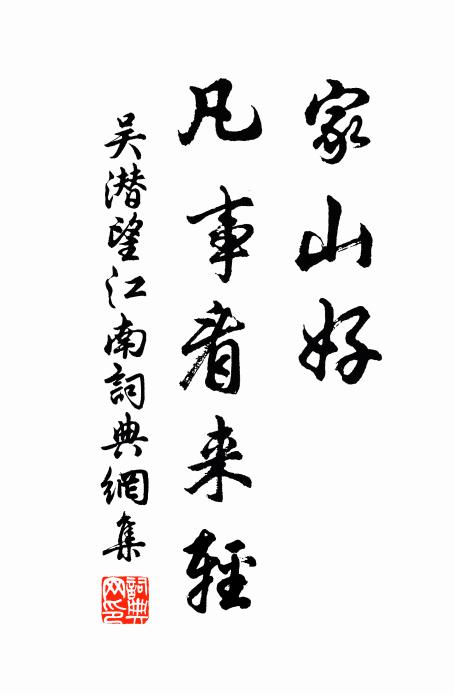 家山好
凡事看来輕
吴潛望江南詞典網集
詞典網印